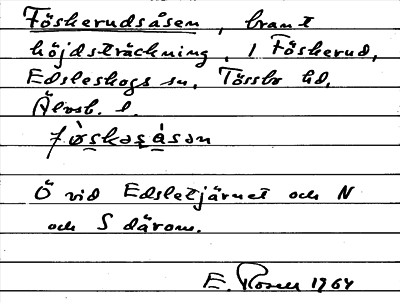 Föskerudsåsen, brant
höjdsträckning, i Föskerud,
Edsleskogs sn, Tössbo hd,
Älvsb. l.
fø̀skəṣá̱sən
Ö vid Edsletjärnet och N
och S därom.
E. Rosell 1964